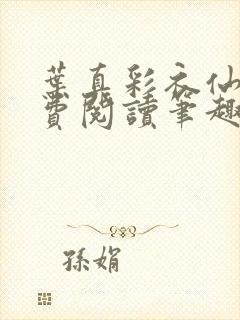 葉真彩衣仙
費閱讀筆趣
孫娟